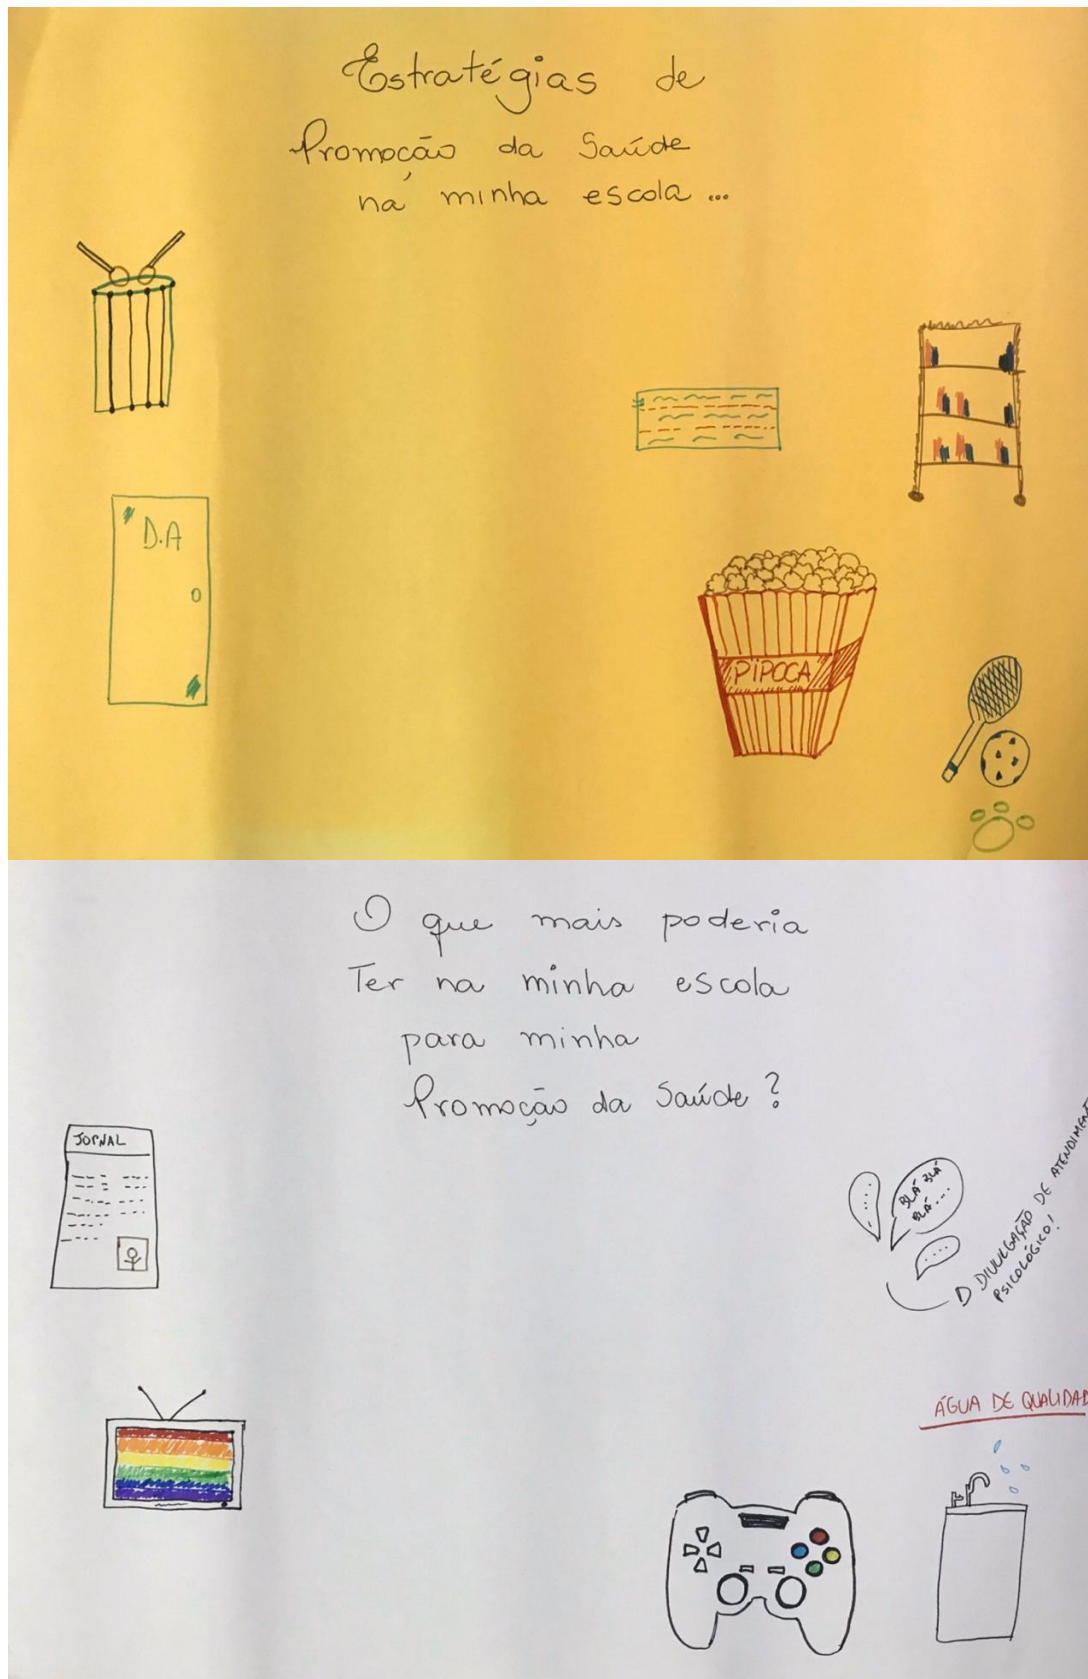 Estratégias de
Promoção da Saúde
na minha escola...
D.A
PIPOCA
O que mais poderia
Ter na minha escola
para minha
Promoção da Saúde?
JORNAL
BLÁ BLÁ
BLÁ....
DIVULGAÇÃO DE ATENDIMEN
PSICOLÓGICO!
ÁGUA DE QUALIDAD